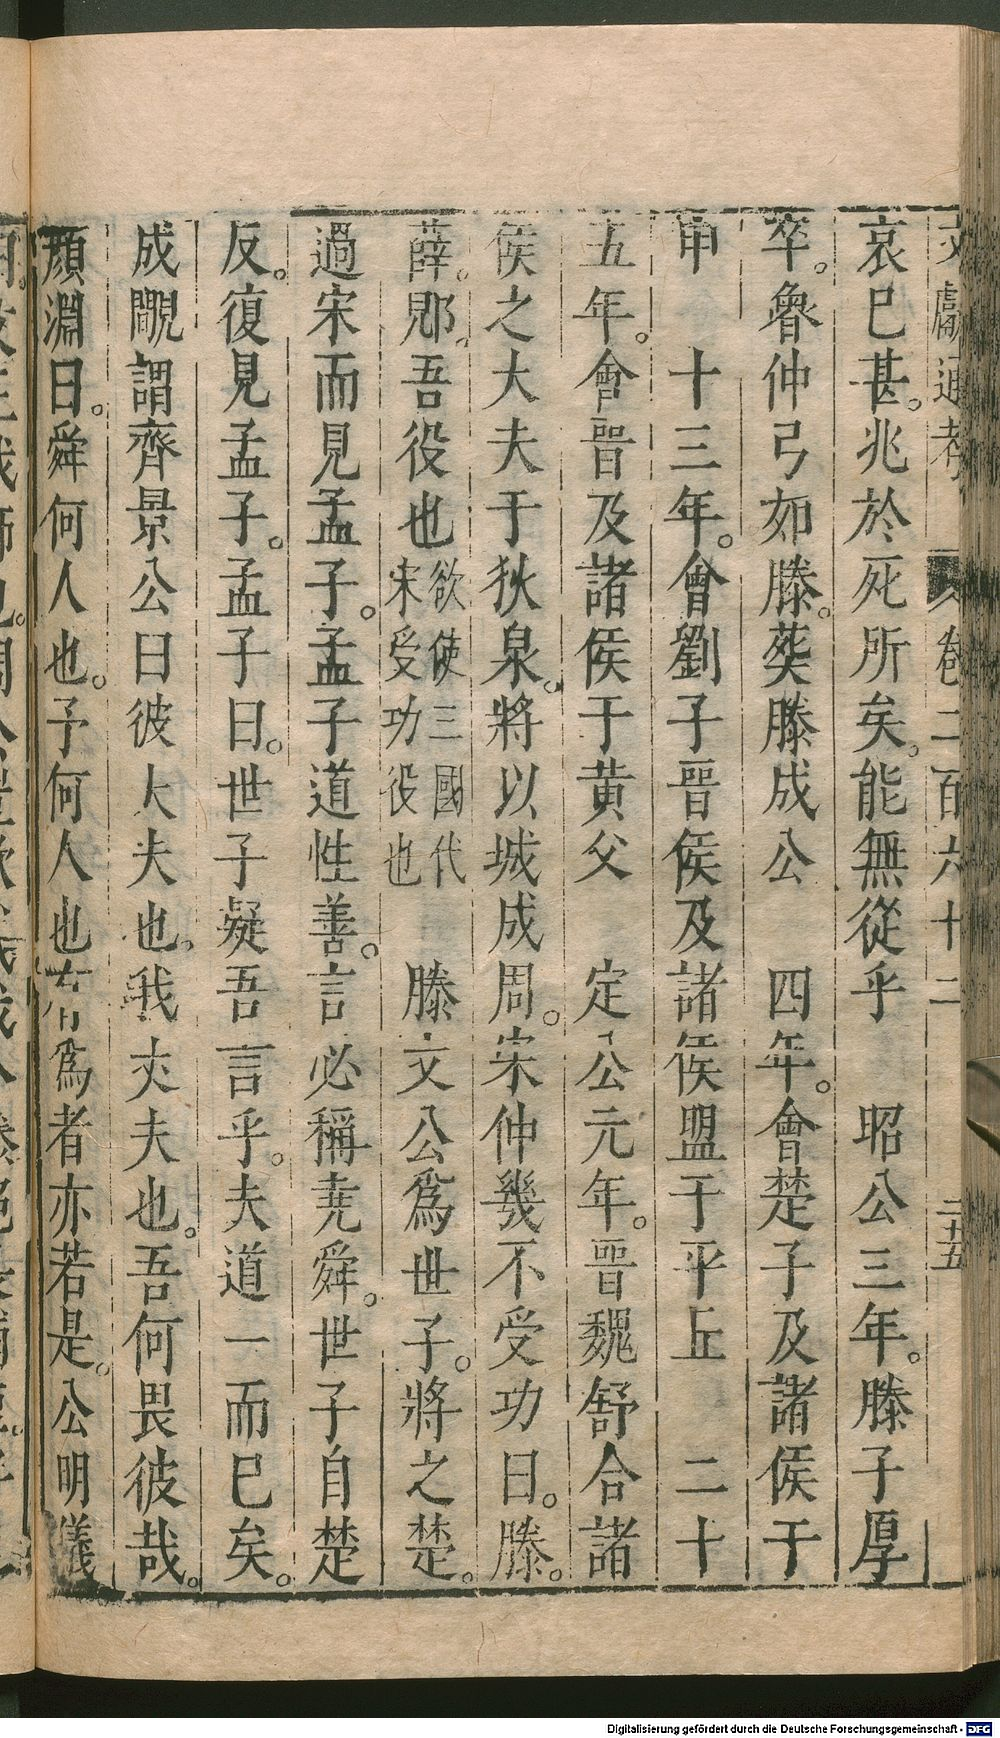 文獻通考 卷二百六十二 二十五
哀已甚。兆於死所矣。能無從乎 昭公三年。滕子厚
卒。魯仲弓如滕。葬滕成公 四年。會楚子及諸侯于
申 十三年。會劉子晉侯及諸侯盟于平丘 二十
五年。會晉及諸侯于黃父 定公元年。晉魏舒合諸
侯之大夫于狄泉。將以城成周。宋仲幾不受功曰。滕。
薛。郳。吾役也欲使三國代宋受功役也 滕文公為世子。將之楚。
過宋而見孟子。孟子道性善。言必稱堯舜。世子自楚
反。復見孟子。孟子曰。世子疑吾言乎。夫道一而已矣。
成覵謂齊景公曰彼大夫也。我丈夫也。吾何畏彼哉。
顏淵曰。舜何人也。予何人也有為者亦若是。公明儀
Digitalisierung gefördert durch die Deutsche Forschungsgemeinschaft - DFG